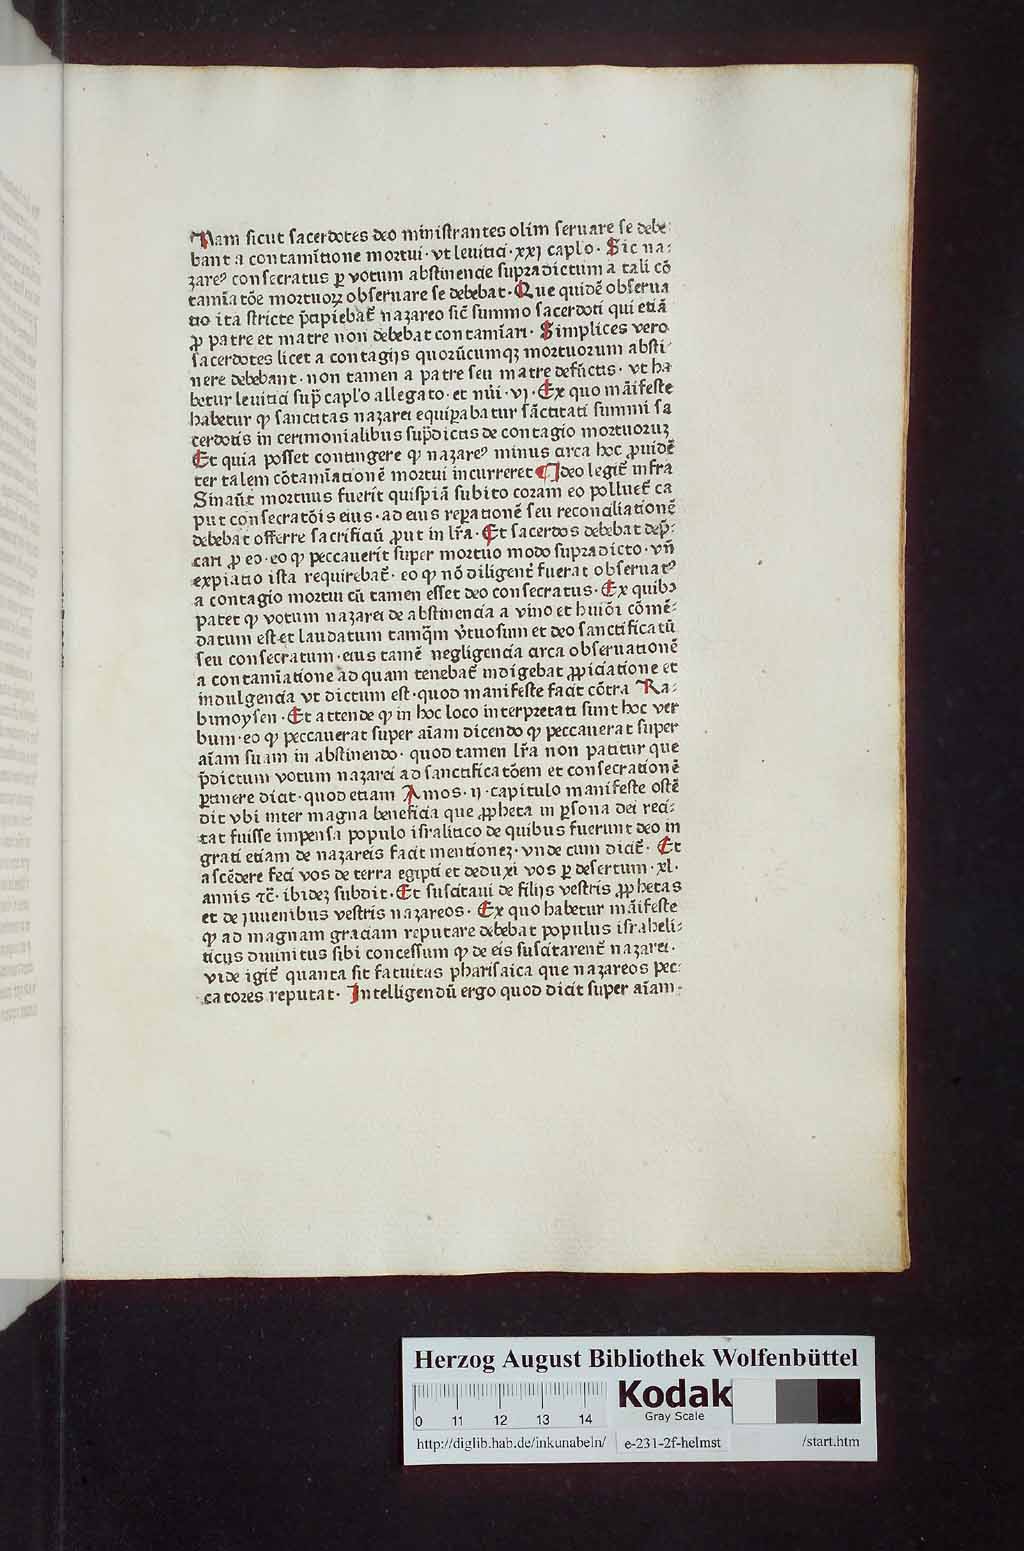 Nam sicut sacerdotes deo ministrantes olim seruare se debe
bant a contamītione mortui · vt leuitici · xxj caplo · Sic na⸗
zareꝰ consecratus ꝑ votum abstinencie supradictum a tali cō
tamīatōe mortuoꝝ obseruare se debebat · Que quidē obserua
tio ita stricte p̄cipiebat᷑ nazareo sic̄ summo sacerdoti qui etiā
ꝓ patre et matre non debebat contamīari · Simplices vero
sacerdotes licet a contagijs quorūcumqꝫ mortuorum absti
nere debebant · non tamen a patre seu matre defūctis · vt ha
betur leuitici sup̄ caplo allegato · et nūi · vj · Ex quo māifeste
habetur ꝙ sanctitas nazarei equiꝑabatur sāctitati summi sa
cerdotis in cerimonialibus sup̄dictis de contagio mortuoruꝫ
Et quia posset contingere ꝙ nazareꝰ minus circa hoc ꝓuidē
ter talem cōtamīationē mortui incurreret ¶ Ideo legit᷑ infra
Sinaūt mortuus fuerit quispiā subito coram eo polluet᷑ ca
put consecratōis eius · ad eius reꝑationē seu reconciliationē
debebat offerre sacrificiū ꝓut in lr̄a · Et sacerdos debebat dep̄⸗
cari ꝓ eo · eo ꝙ peccauerit super mortuo modo supradicto · vn̄
expiatio ista requirebat᷑ · eo ꝙ nō diligent᷑ fuerat obseruatꝰ
a contagio mortui cū tamen esset deo consecratus · Ex quibꝫ
patet ꝙ votum nazarei de abstinencia a vino et huiōi cōmē⸗
datum est et laudatum tamq̄m v̄tuosum et deo sanctificatū
seu consecratum · eius tamē negligencia circa obseruationē
a contamīatione ad quam tenebat᷑ indigebat ꝓpiciatione et
indulgencia vt dictum est · quod manifeste facit cōtra Ra⸗
bimoysen · Et attende ꝙ in hoc loco interpretati sunt hoc ver
bum · eo ꝙ peccauerat super aīam dicendo ꝙ peccauerat super
aīam suam in abstinendo · quod tamen lr̄a non patitur que
p̄dictum votum nazarei ad sanctificatōem et consecrationē
ꝑtinere dicit · quod etiam Amos · ij · capitulo manifeste ostē
dit vbi inter magna beneficia que ꝓpheta in ꝑsona dei reci⸗
tat fuisse impensa populo israhelitico de quibus fuerunt deo in
grati etiam de nazareis facit mentionez · vnde cum dicit᷑ · Et
ascēdere feci vos de terra egipti et deduxi vos ꝑ desertum · xl ·
annis ⁊c̄ · ibidez subdit · Et suscitaui de filijs vestris ꝓphetas
et de juuenibus vestris nazareos · Ex quo habetur māifeste
ꝙ ad magnam graciam reputare debebat populus israheli⸗
ticus diuinitus sibi concessum ꝙ de eis suscitarent᷑ nazarei ·
vide igit᷑ quanta sit fatuitas pharisaica que nazareos pec⸗
catores reputat · Intelligendū ergo quod dicit super aīam ·
Herzog August Bibliothek Wolfenbüttel
0 11 12 13 14
Kodak
Gray Scale
http://diglib.hab.de/inkunabeln/ e-231-2f-helmst /start.htm